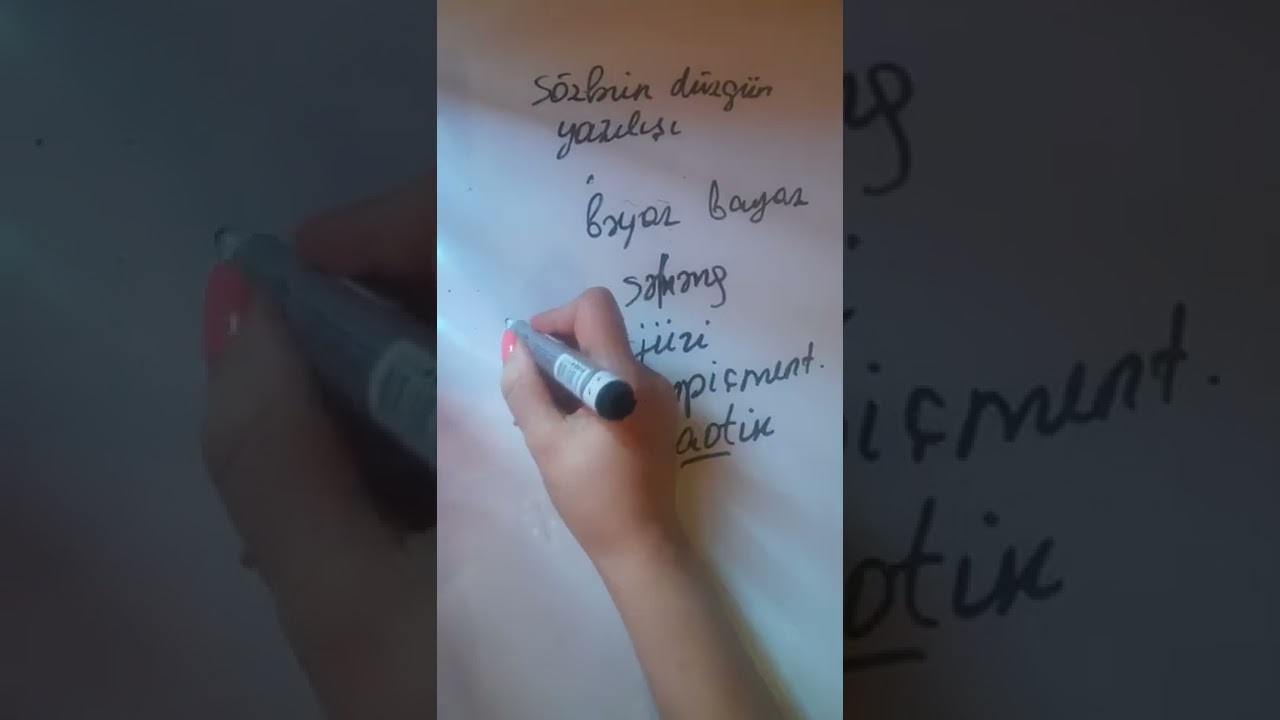 Sözlərin düzgün
yazılışı
bəyaz bayaz
səhəng
jüri
mpiçment.
aotik